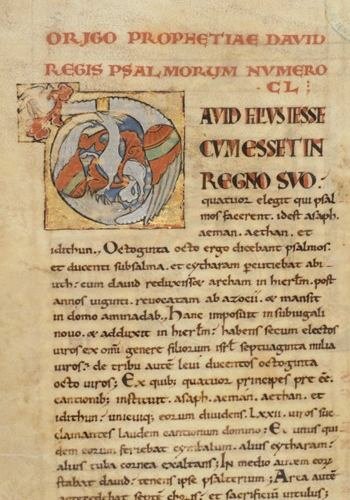 ORIGO PROPHETIAE DAVID
REGIS PSALMORUM NUMERO
CL
DAVID FILIUS IESSE
CUM ESSET IN
REGNO SUO.
quatuor elegit qui psal
mos facerent. idest asaph.
aeman. aethan. et
idithun. Octoginta octo ergo dicebant psalmos.
et ducenti subsalma. et cytharam percutiebat abi
uth. cum david reduxisset archam in hierlm. post
annos viginti. revocatam ab azocii. & mansit
in domo aminadab. Hanc imposuit in subiugali
novo. & adduxit in hierlm. habens secum electos
viros ex omi genere filiorum isrl septuaginta milia
viros. de tribu aute levi ducentos octoginta
octo viros. Ex quib; quatuor principes pre ee.
cantionib; instituit. asaph. aeman. aethan. et
idithun. unicuiq; eorum dividens. LXXII. viros suc
clamantes laudem cantionum domino. Et unus qui
dem eorum feriebat cymbalum. alius cytharam.
alius tuba cornea exaltans. In medio autem eor
stabat david. tenens ipse psalterium. Arca aute
antecedebat septe choris. et sacrificiu vitulus.